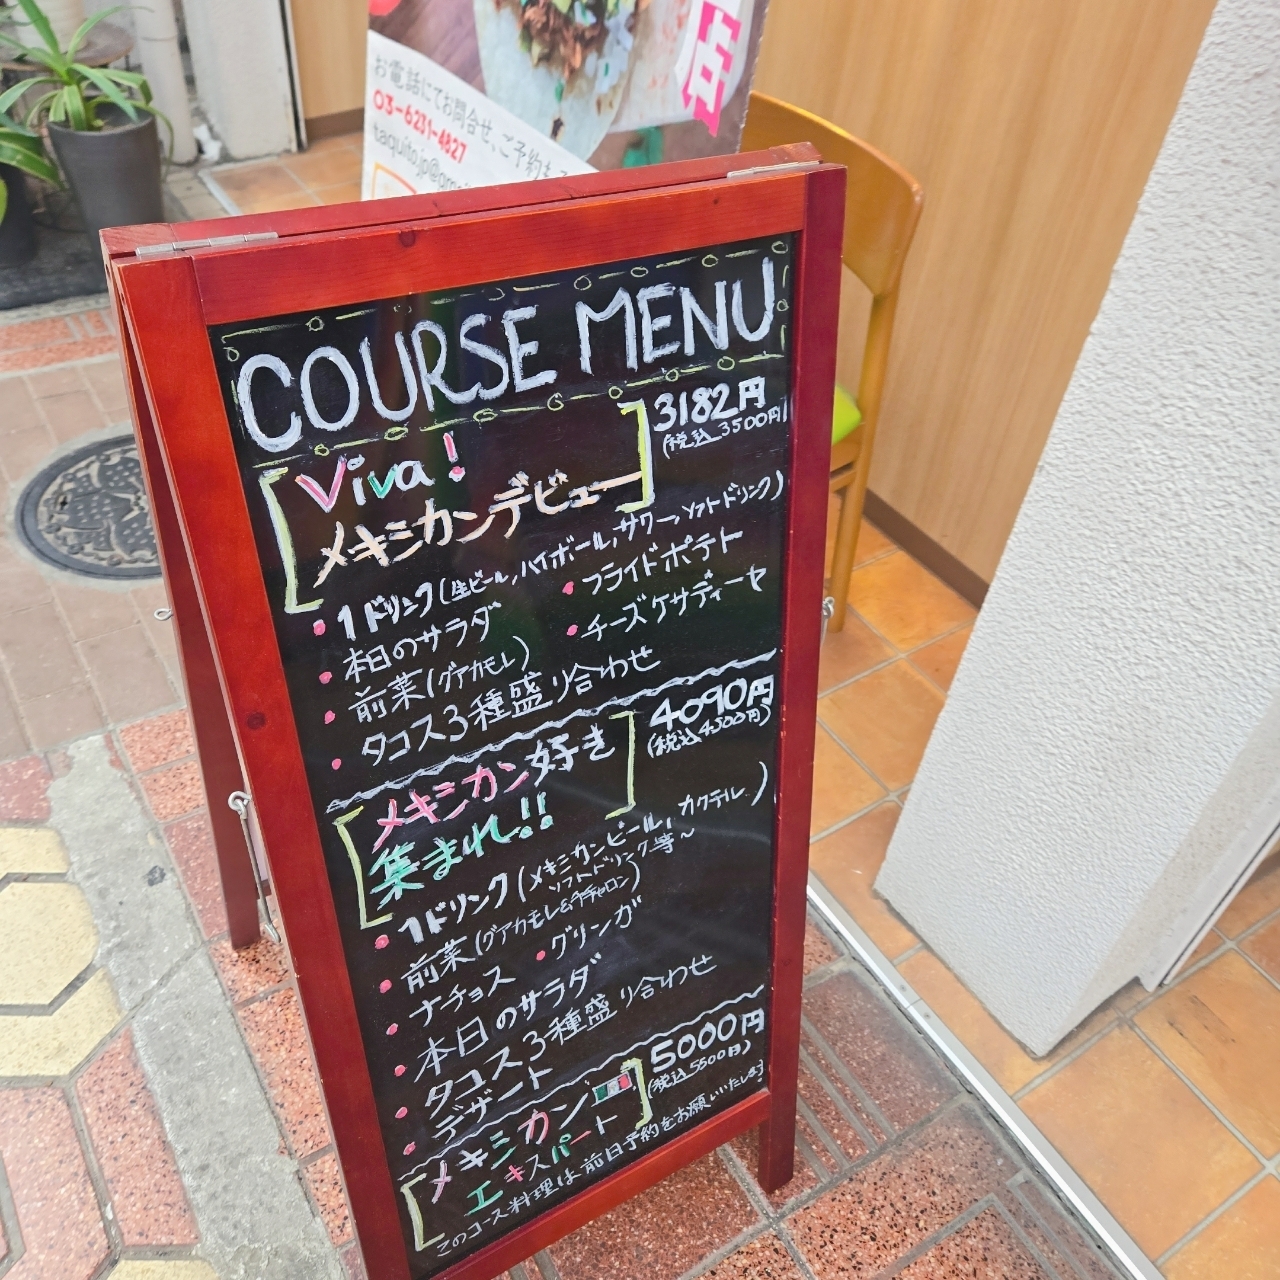 店
お電話にてお問合せ、ご予約を
03-6231-4827
taquito.jp@gm
COURSE MENU
Viva!
メキシカンデビュー
3182円
(税込3500円)
・1ドリンク(生ビール,ハイボール,サワー,ソフトドリンク)
・本日のサラダ ・フライドポテト
・前菜(グアカモレ) ・チーズケサディーヤ
・タコス3種盛り合わせ
メキシカン好き
集まれ!!
4090円
(税込4500円)
・1ドリンク(メキシカンビール,カクテル,
ソフトドリンク等~)
・前菜(グアカモレ&チチャロン)
・ナチョス ・グリンガ
・本日のサラダ
・タコス3種盛り合わせ
・デザート
メキシカン
エキスパート
5000円
(税込5500円)
このコース料理は前日予約をお願いいたします